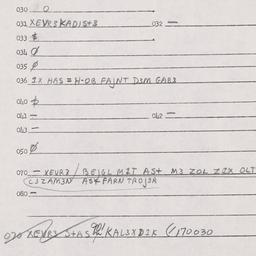 030 0
031 XEVRSKADIS+8 032 —
033
034 Ø
035 ø
036 IX HAS = H-OB FAJNT DIM GABS
040
041 — 042 —
043 —
050 Ø
070 — XEVR3 / BEIGL MIT AS+ M3 ZOL ZIX OLT
ASK FARN TROJSR
080 —
070 XEVR3 S+AS KALSXDIK (/170030